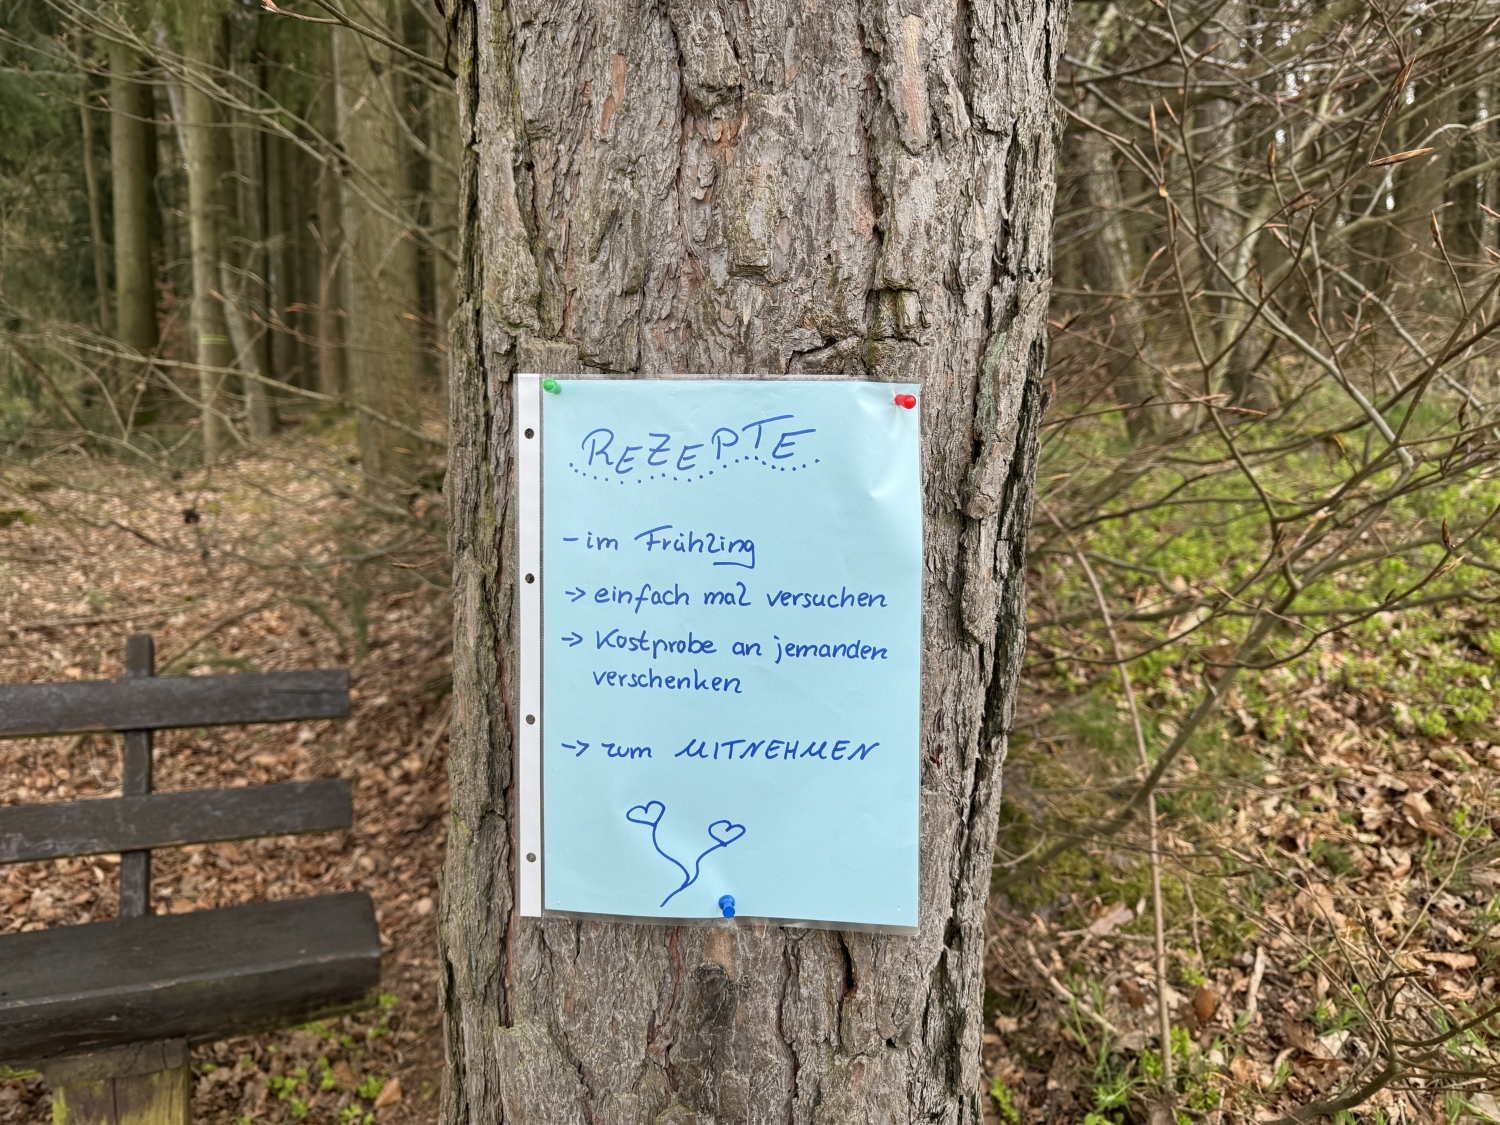 REZEPTE
- im Frühling
-> einfach mal versuchen
-> Kostprobe an jemanden
verschenken
-> zum MITNEHMEN